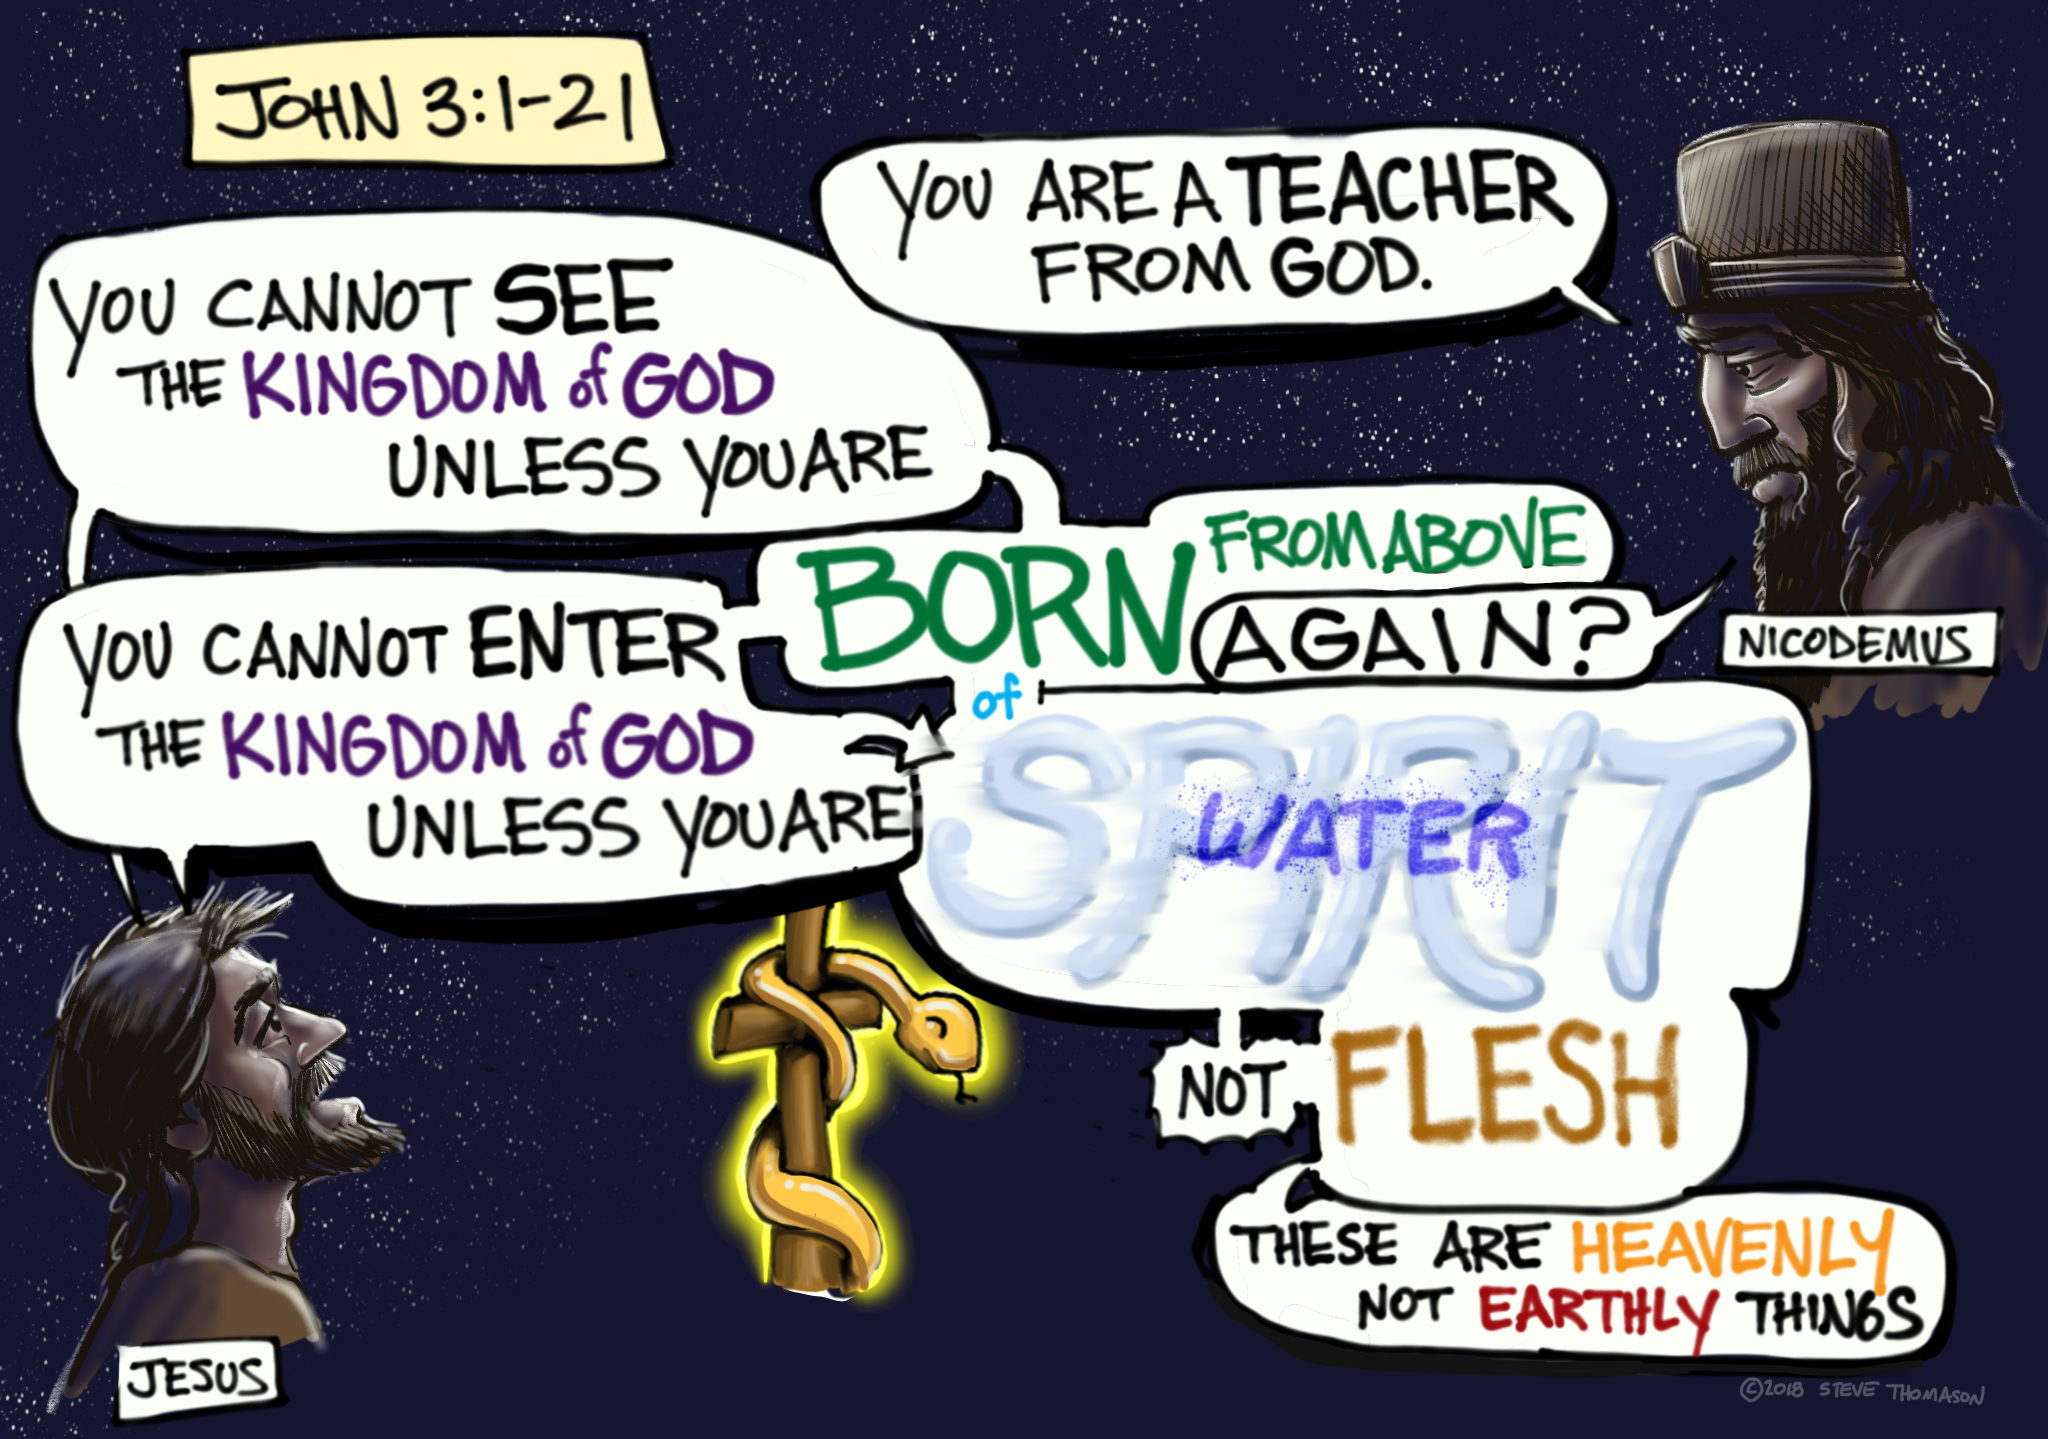 JOHN 3:1-21
YOU ARE A TEACHER
FROM GOD.
YOU CANNOT SEE
THE KINGDOM of GOD
UNLESS YOU ARE
BORN FROM ABOVE
AGAIN?
NICODEMUS
YOU CANNOT ENTER
THE KINGDOM of GOD
UNLESS YOU ARE
of
SPIRIT
WATER
NOT FLESH
THESE ARE HEAVENLY
NOT EARTHLY THINGS
JESUS
©2018 STEVE THOMASON